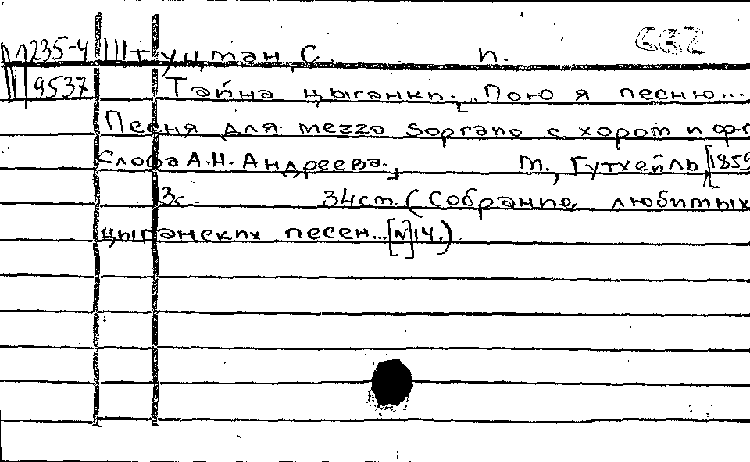 235-4 Штуцман, С. п. 632
9537 Тайна цыганки. „Пою я песню...
Песня для mezzo soprano с хором и ф-п
Слова А.Н. Андреева. М., Гутхейль, [1859
3с. 34см. (Собрание любимых
цыганских песен...[N]14.)